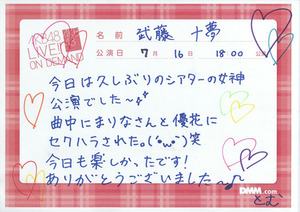 AKB48
LIVE!!
ON DEMAND
名前 武藤 十夢
公演日 7月16日 18:00 公演
今日は久しぶりのシアターの女神
公演でした〜♪
曲中にまりなさんと優花に
セクハラされた。(´・ω・`)笑
今日も楽しかったです!
ありがとうございました〜♪
DMM.com
とむ